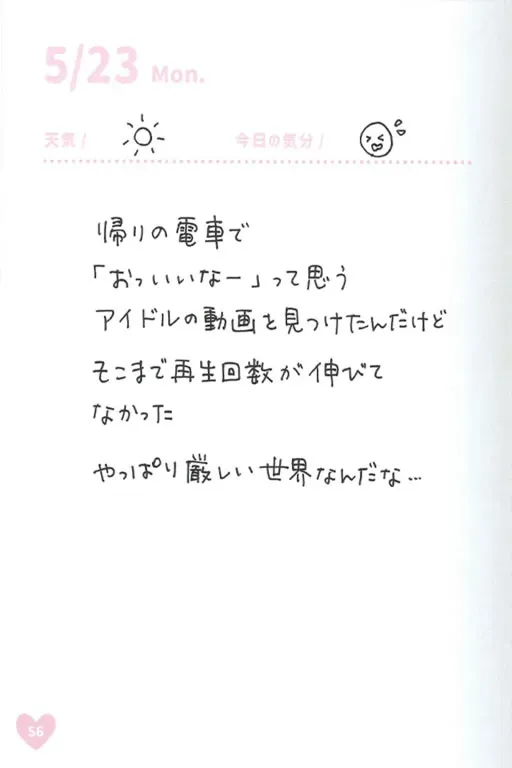 5/23 Mon.
天気/ 今日の気分/
帰りの電車で
「おっいいなー」って思う
アイドルの動画を見つけたんだけど
そこまで再生回数が伸びて
なかった
やっぱり厳しい世界なんだな…
56